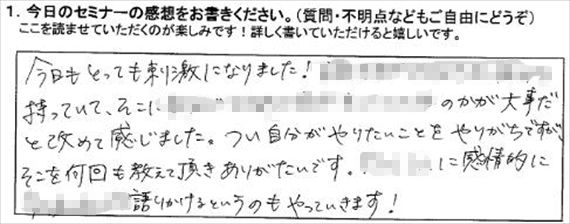 1. 今日のセミナーの感想をお書きください。(質問・不明点などもご自由にどうぞ)
ここを読ませていただくのが楽しみです!詳しく書いていただけると嬉しいです。
今日もとっても刺激になりました!
持っていて、そこに のかが大事だ
と改めて感じました。つい自分がやりたいことをやりがちですが、
そこを何回も教えて頂きありがたいです。 に感情的に
語りかけるというのもやっていきます!